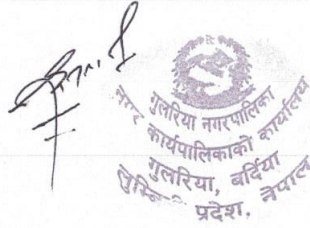 गुलरिया नगरपालिका
नगर कार्यपालिकाको कार्यालय
गुलरिया, बर्दिया
प्रदेश, नेपाल